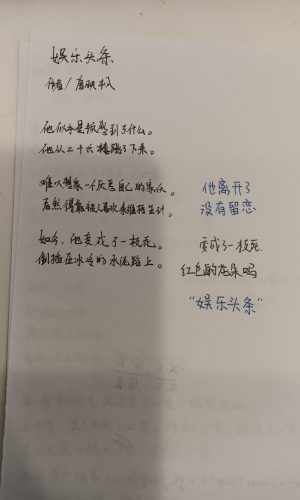 娱乐头条
作者/唐映枫
他似乎是预感到了什么。
他从二十六楼跳了下来。
难以想象一个厌恶自己的家伙。
居然得靠被人喜欢来维持生计。
如今,他变成了一枝花。
倒插在冰冷的水泥路上。
他离开了
没有留恋
变成了一枝花
红色的花朵吗
“娱乐头条”